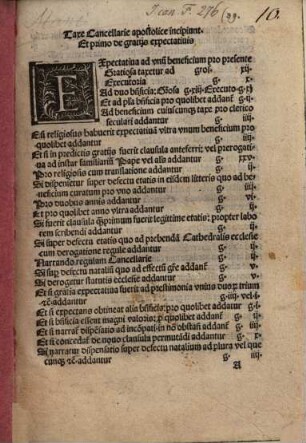 Jean. F. 276 (29. 10.
Taxe Cancellarie apostolice incipiunt.
Et primo de gratijs expectatiuis
EXpectatiua ad vnũ beneficium pro presente
Gratiosa taxetur ad gros. xij.
Executoria g. x.
Ad duo bñficia; Gẽosa g. xij. Executo. g. xj
Et ad pl̃a bñficia pro quolibet addant̃ g. ij.
Ad beneficium cuiuscunq; taxe pro clerico
seculari addantur g. iiij.
Et si religiosus habuerit expectatiuã vltra vnum beneficium pro
quolibet addantur g. iij.
Et si in predictis gratijs fuerit clausula anteferri; vel prerogati-
ua ad instar familiariũ Pape vel alis addantur g. iij.
Pro religiosis cum translatione addantur g. iiij.
Si dispensetur super defectu etatis in eisdem litteris quo ad be-
neficium curatum pro vno addantur g. iij.
Pro duobus annis addantur g. vj.
Et pro quolibet anno vltra addantur g. ij.
Si fuerit clausula q̃primum fuerit legittime etatis; propter labo
rem scribendi addantur g. iij.
Si super defectu etatis quo ad prebendã Cathedralis ecclesie
cum derogatione regule addantur g. iij.
Narrando regulam Cancellarie g. vj.
Si sup̃ defectu nataliũ quo ad effectũ gr̃e addant̃ g. v.
Si derogatur statutis ecclesie addantur g. ij.
Et si gratia expectatiua fuerit ad prestimonia vnius duoꝝ trium
⁊c̃ addantur g. iij. vel. i
Et si expectans obtineat alia bñficia; pro quolibet addantur g. j.
Et si bñficia essent magni valoris; p̱ quolibet addant̃ g. ij.
Et si narrat̃ dispẽsatio ad incõpatibilia nõ obstañ addant̃ g. iij.
Et si concedat̃ de nouo clausula permutãdi addant̃ g. iiij.
Si narratur dispensatio super defectu natalium ad plura vel que
cunq; ⁊c̃ addantur g. iij.
A